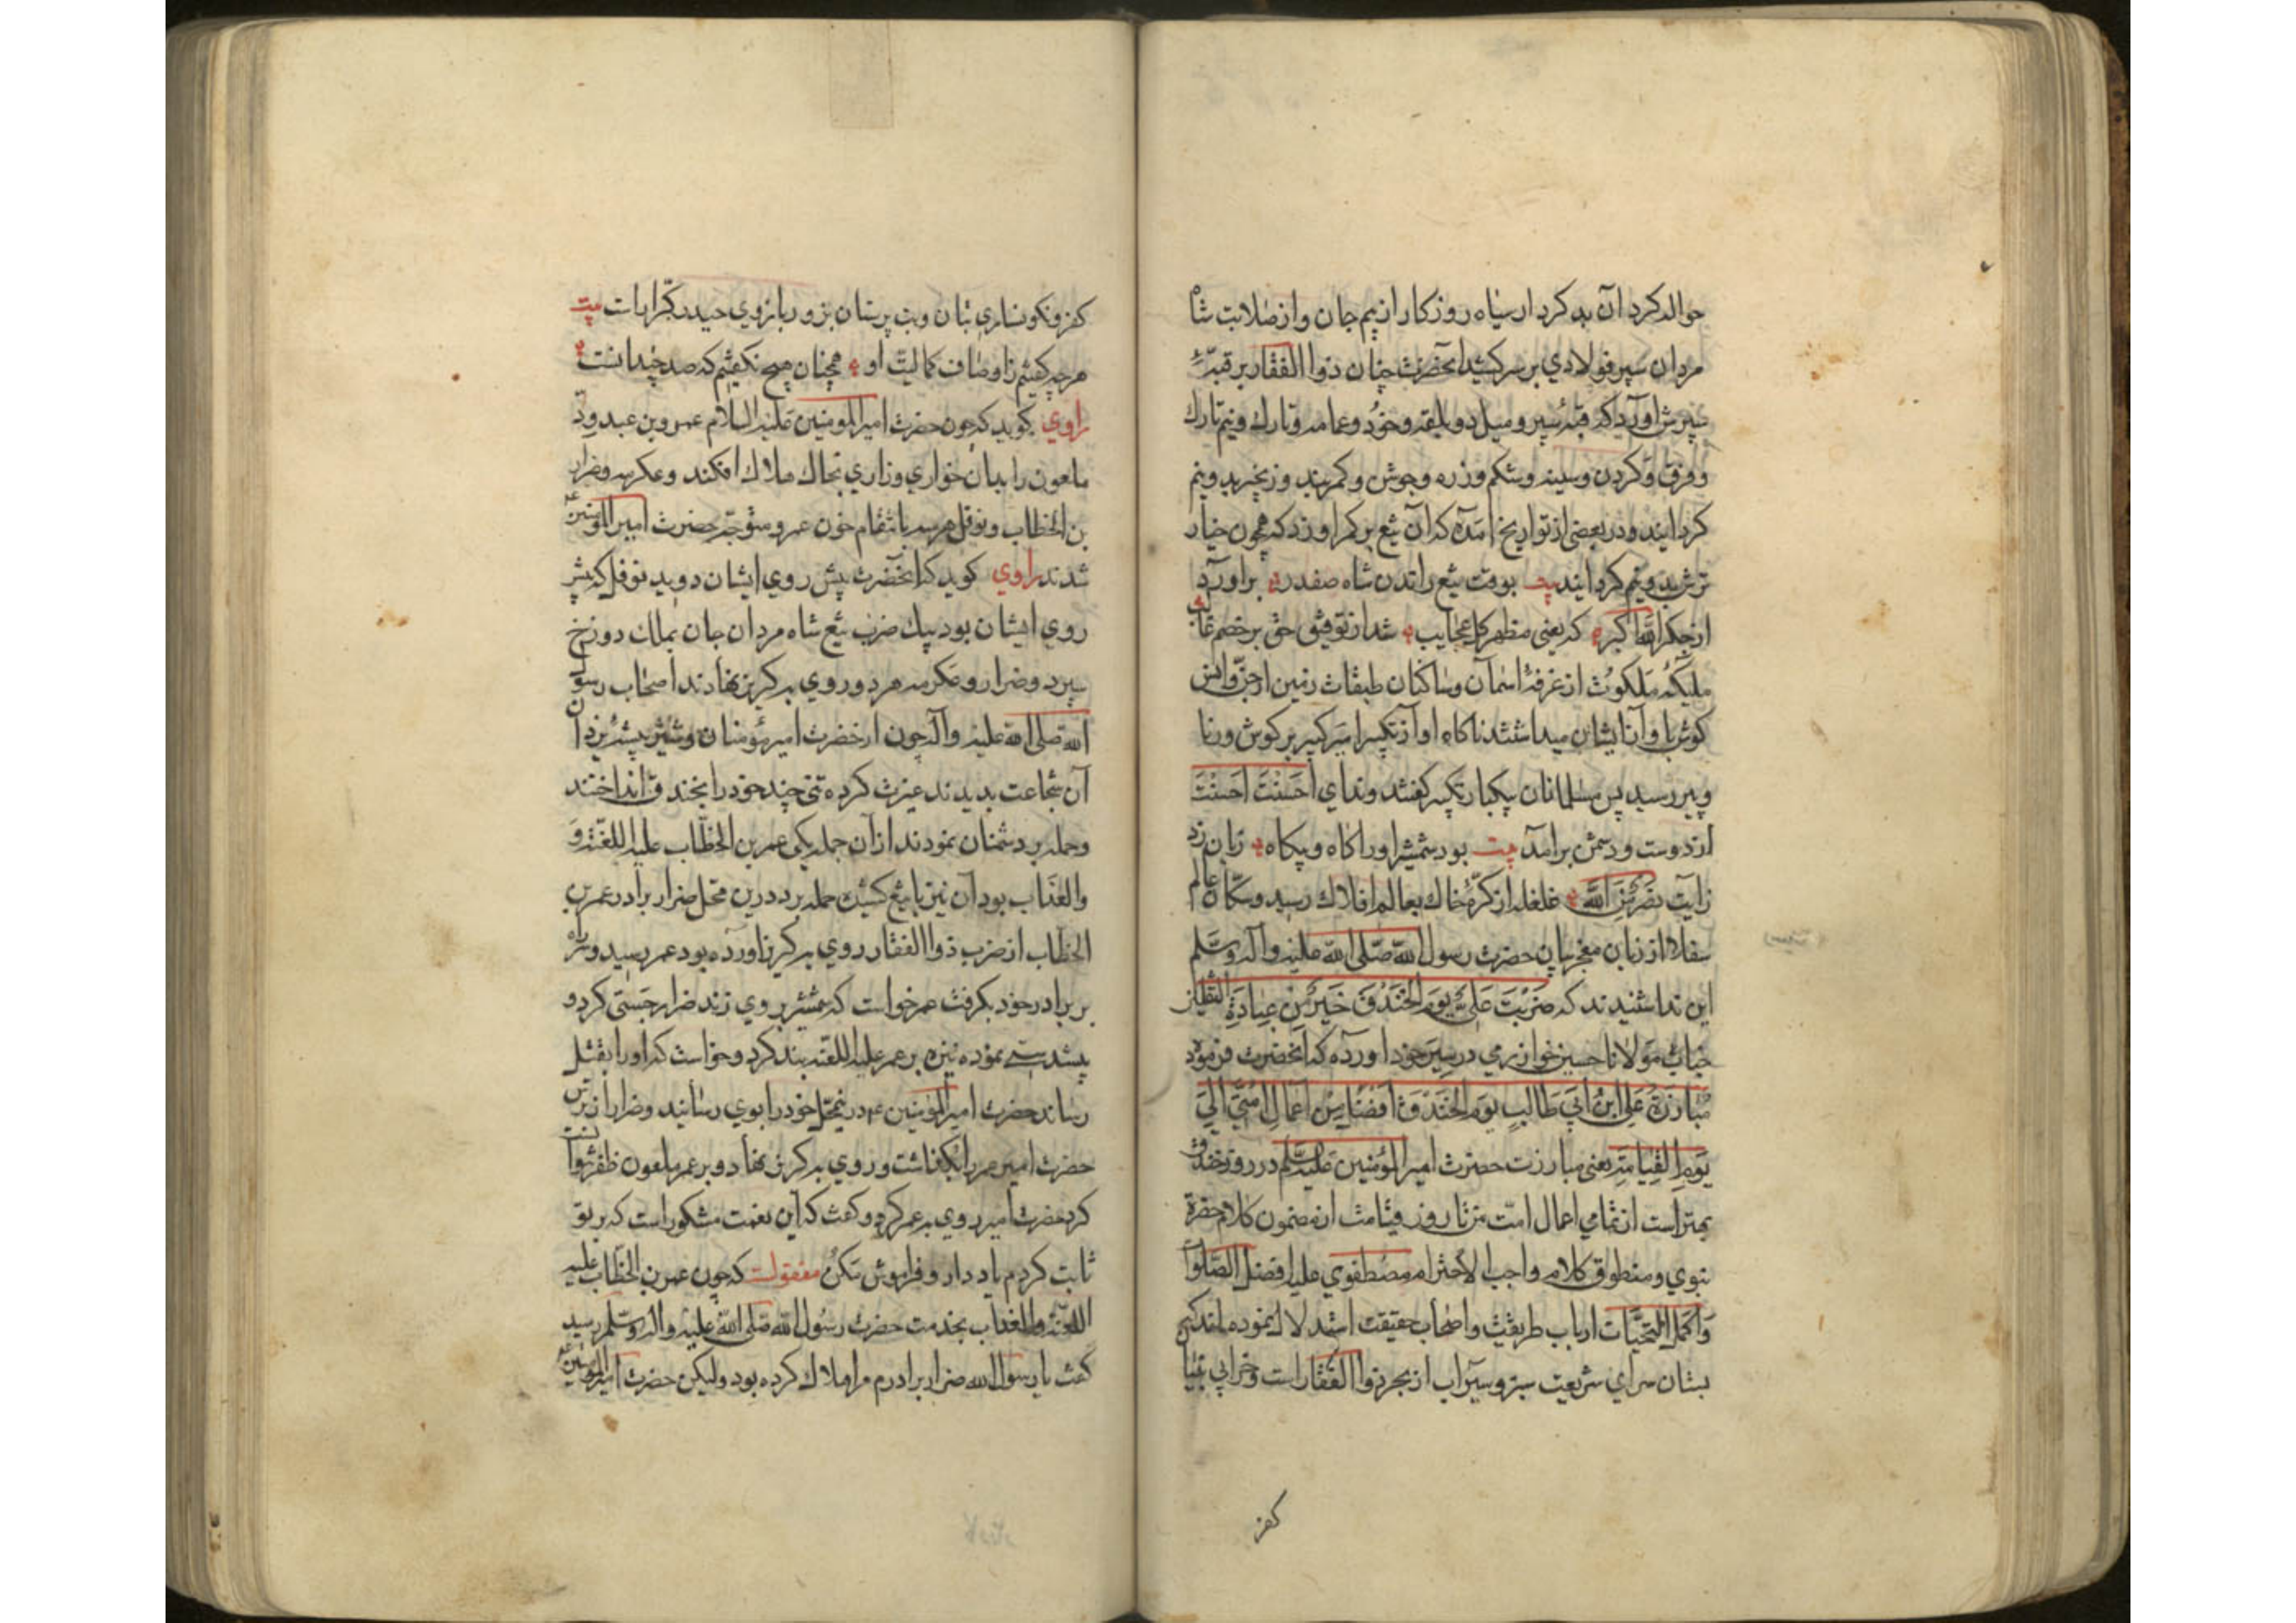 حواله کرد آن بد کردار سیاه روزکار از بیم جان و از صلابت شاه
مردان سپر فولادی بر سر کشید آنحضرت چنان ذوا الفقار بر قبهٔ
سپرش آورد که قبهٔ سپر و میل دوبلغه و خود و عمامه و تارک و نیم تارک
و فرق و کردن و سینه و شکم و زره و جوشن و کمر بند و زنجیر بدو نیم
کردانید و در بعضی از تواریخ آمده که آن تیغ بر کمر او زد که همچون خیار
ترش بدو نیم کردانید بیت بوقت تیغ راندن شاه صفدر براورد
از جکر الله اکبر که یعنی مظهر کل عجایب شد از توفیق حق بر خصم غالب
ملیکهٔ ملکوت از غرفهٔ اسمان و ساکنان طبقات زمین از جن و انس
کوش با واز ایشان میداشتند ناکاه اواز تکبیر امیر کبیر بر کوش ورنا
و پیر رسید پس مسلمانان بیکبار تکبیر کفتند و ندای احسنت احسنت
از دوست و دشمن برامد بیت بود شمشیر او را کاه و بیکاه زبان زد
زایت نصر من الله غلغله از کرهٔ خاک بعالم افلاک رسید و سکان عالم
سفلا از زبان معجز بیان حضرت رسول الله صلی الله علیه وآله وسلم
این ندا شنیدند که ضربت علی یوم الخندق خیر من عبادة الثقلین
جناب مولانا حسین خوارزمی در سیر خود اورده که انحضرت فرموده
مبارزة علی ابن ابی طالب یوم الخندق افضل من اعمال امتی الی
یوم القیامة یعنی مبارزت حضرت امیر المؤمنین علیه السلم در روز خندق
بهتر است از تمامی اعمال امت من تا روز قیامت از مضمون کلام حضرة
نبوی و منطوق کلام واجب الاحترام مصطفوی علیه افضل الصلوات
و اکمل التحیات ارباب طریقت و اصحاب حقیقت استدلال نموده اند که
بستان سرای شریعت سبز و سیراب از بحر ذوا الفقار است و خرابی بنیا
کفر
کفر و نکونساری بتان و بت پرستان بزور بازوی حیدر کرار است بیت
هر چه کفتیم ز اوصاف کمالیت او همچنان هیچ نکفتیم که صد چندانست
راوی کوید که چون حضرت امیر المومنین علیه السلام عمرو بن عبدود
ملعون را بدان خواری و زاری بخاک هلاک افکند و عکرمه و ضرار
بن الخطاب و نوفل هر سه بانتقام خون عمرو متوجه حضرت امیر المومنین ع
شدند راوی کوید که انحضرت پیش روی ایشان دوید نوفل که پیش
روی ایشان بود بیک ضرب تیغ شاه مردان جان بمالک دوزخ
سپرد و ضرار و عکرمه هر دو روی بکریز نهادند اصحاب رسول
الله صلی الله علیه وآله چون از حضرت امیر مؤمنان و شیر بیشهٔ یزدان
آن شجاعت بدیدند غیرت کرده تنی چند خود را بخندق انداختند
و حمله بر دشمنان نمودند از آن جمله یکی عمر بن الخطاب علیه اللعنة و
والعذاب بود آن نیز با تیغ کشیده حمله برد درین محل ضرار برادر عمر بن
الخطاب از ضرب ذوا الفقار روی بکریز اورده بود عمر رسید و سر راه
بر برادر خود بکرفت عمر خواست که شمشیر بر وی زند ضرار جستی کرد و
پیشدستی نموده نیزه بر عمر علیه اللعنه بند کرد و خواست که او را بقتل
رساند حضرت امیر المؤمنین ع در نیمحل خود را بوی رسانید و ضرار از ترس
حضرت امیر عمر را بکذاشت و روی بکریز نهاد و بر عمر ملعون ظفر نتوانست
کرد حضرت امیر روی بعمر کرد و کفت که این نعمت مشکور است که بر تو
ثابت کردم یاد دار و فراموش مکن منقولست که چون عمر بن الخطاب علیه
اللعنة والعذاب بخدمت حضرت رسول الله صلی الله علیه وآله وسلم رسید
کفت یا رسول الله ضرار برادرم مرا هلاک کرده بود ولیکن حضرت امیر المومنین ع